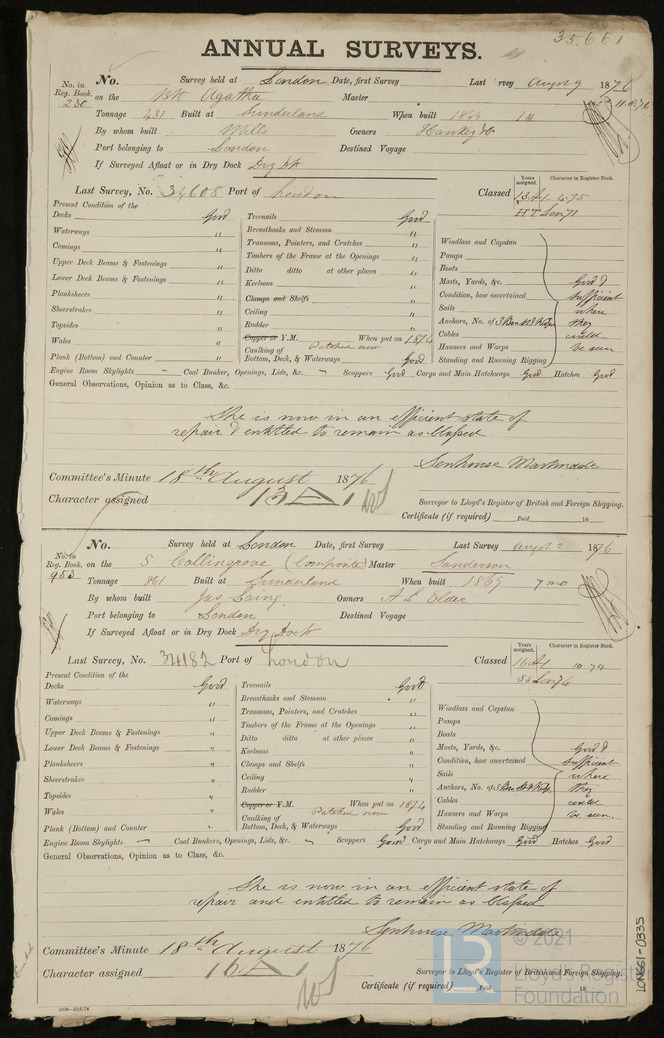 35661
ANNUAL SURVEYS.
No. in Reg. Book. 230
No. Survey held at London Date, first Survey Last Survey Augst 9 1876
on the Bk Agatha Master
Tonnage 431 Built at Sunderland When built 1865
By whom built Mills Owners Hankey & Co
Port belonging to London Destined Voyage
If Surveyed Afloat or in Dry Dock Dry Dk
Last Survey, No. 34608 Port of London Classed
Years assigned. Character in Register Book.
13 A1 4.75
HT Lon 71
Present Condition of the
Decks Good
Waterways "
Comings "
Upper Deck Beams & Fastenings "
Lower Deck Beams & Fastenings "
Planksheers "
Sheerstrakes "
Topsides "
Wales "
Plank (Bottom) and Counter "
Treenails Good
Breasthooks and Stemson "
Transoms, Pointers, and Crutches "
Timbers of the Frame at the Openings "
Ditto ditto at other places "
Keelsons "
Clamps and Shelfs "
Ceiling "
Rudder "
Copper or Y.M. Patched now When put on 1874
Caulking of Bottom, Deck, & Waterways Good
Windlass and Capstan
Pumps
Boats
Masts, Yards, &c. Good &
Condition, how ascertained sufficient
Sails where
Anchors, No. of 3 Bars St & Kedge they
Cables could
Hawsers and Warps be seen
Standing and Running Rigging
Engine Room Skylights — Coal Bunkers, Openings, Lids, &c. — Scuppers Good Cargo and Main Hatchways Good Hatches Good
General Observations, Opinion as to Class, &c.
She is now in an efficient state of
repair & entitled to remain as Classed
Senhouse Martindale
Committee's Minute 18th August 1876
Character assigned 13 A 1
Surveyor to Lloyd's Register of British and Foreign Shipping.
Certificate (if required) Paid 18
No. in Reg. Book. 953
No. Survey held at London Date, first Survey Last Survey Augst 2 1876
on the S Collingrove (Composite) Master Sanderson
Tonnage 861 Built at Sunderland When built 1869 7 mo
By whom built Jas Laing Owners A L Elder
Port belonging to London Destined Voyage
If Surveyed Afloat or in Dry Dock Dry Dock
Last Survey, No. 34182 Port of London Classed
Years assigned. Character in Register Book.
16 A1 10.74
SS Lon 74
Present Condition of the
Decks Good
Waterways "
Comings "
Upper Deck Beams & Fastenings "
Lower Deck Beams & Fastenings "
Planksheers "
Sheerstrakes "
Topsides "
Wales "
Plank (Bottom) and Counter "
Treenails Good
Breasthooks and Stemson "
Transoms, Pointers, and Crutches "
Timbers of the Frame at the Openings "
Ditto ditto at other places "
Keelsons "
Clamps and Shelfs "
Ceiling "
Rudder "
Copper or Y.M. Patched now When put on 1874
Caulking of Bottom, Deck, & Waterways Good
Windlass and Capstan
Pumps
Boats
Masts, Yards, &c. Good &
Condition, how ascertained sufficient
Sails where
Anchors, No. of 3 Bars St & Kedge they
Cables could
Hawsers and Warps be seen.
Standing and Running Rigging
Engine Room Skylights — Coal Bunkers, Openings, Lids, &c. — Scuppers Good Cargo and Main Hatchways Good Hatches Good
General Observations, Opinion as to Class, &c.
She is now in an efficient state of
repair and entitled to remain as Classed
Senhouse Martindale
Committee's Minute 18th August 1876
Character assigned 16 A 1
Surveyor to Lloyd's Register of British and Foreign Shipping.
Certificate (if required) Paid 18
LON661-0335
LR © 2021
Lloyd's Register
Foundation